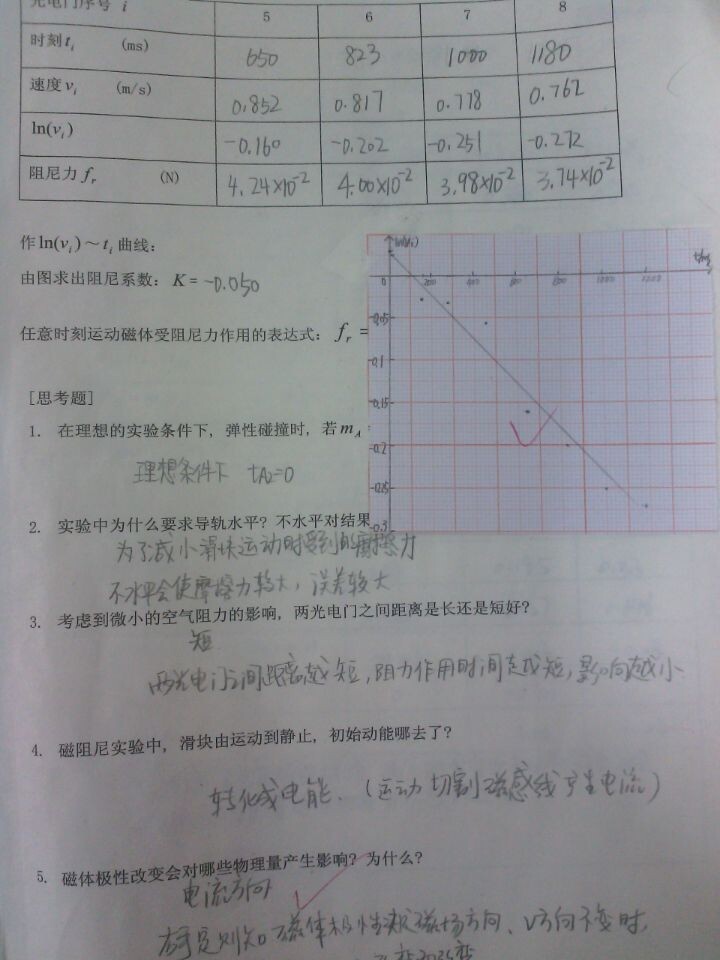 光电门序号 i 5 6 7 8
时刻 ti (ms) 650 823 1000 1180
速度 vi (m/s) 0.852 0.817 0.778 0.762
ln(vi) -0.160 -0.202 -0.251 -0.272
阻尼力 fr (N) 4.24×10-2 4.00×10-2 3.98×10-2 3.74×10-2
作 ln(vi)～ti 曲线：
由图求出阻尼系数：K = -0.050
任意时刻运动磁体受阻尼力作用的表达式：fr =
ln(vi)
0 200 400 600 800 1000 1200
0.05
-0.1
-0.15
-0.2
-0.25
-0.3
[思考题]
1. 在理想的实验条件下，弹性碰撞时，若 mA
理想条件下 tA2=0
2. 实验中为什么要求导轨水平？不水平对结果
为了减小滑块运动时受到的摩擦力
不水平会使摩擦力较大，误差较大
3. 考虑到微小的空气阻力的影响，两光电门之间距离是长还是短好？
短
两光电门之间距离越短，阻力作用时间越短，影响越小
4. 磁阻尼实验中，滑块由运动到静止，初始动能哪去了？
转化成电能．（运动切割磁感线产生电流）
5. 磁体极性改变会对哪些物理量产生影响？为什么？
电流方向
定则知 磁体极性 磁场方向、v方向不变时，